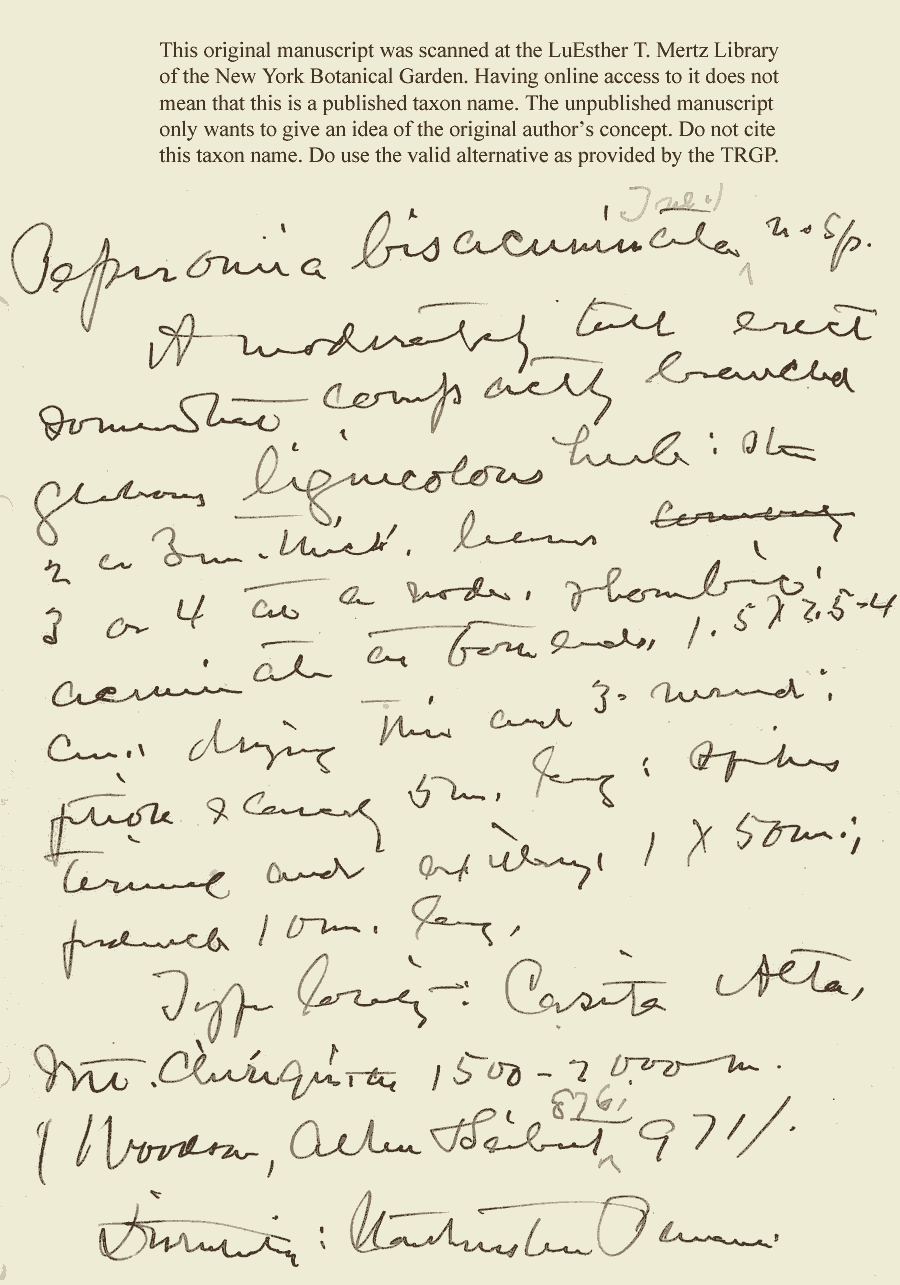 This original manuscript was scanned at the LuEsther T. Mertz Library
of the New York Botanical Garden. Having online access to it does not
mean that this is a published taxon name. The unpublished manuscript
only wants to give an idea of the original author's concept. Do not cite
this taxon name. Do use the valid alternative as provided by the TRGP.
Peperomia bisacuminata n. sp.
A moderately tall erect
somewhat compactly branched
glabrous lignicolous herb: stem
2 or 3mm. thick. leaves
3 or 4 at a node, rhombic,
acuminate at both ends, 1.5 X 3.5-4
cm., drying thin and 3-nerved;
petiole scarcely 5m. long; spikes
terminal and axillary, 1 X 50m.;
peduncle 10m. long.
Type locality: Casita Alta,
Mt. Chiriqui 1500-2000 m.
(Woodson, Allen & Seibert 971).
Panama.